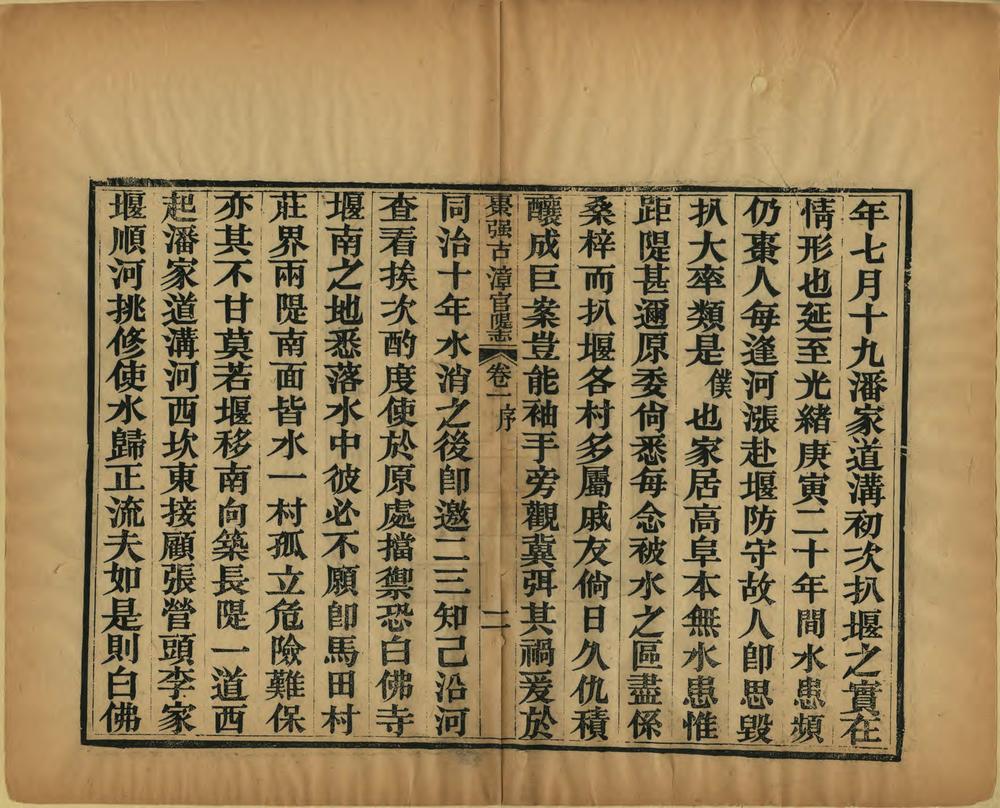 年七月十九潘家道溝初次扒堰之實在
情形也延至光緒庚寅二十年間水患頻
仍棗人每逢河漲赴堰防守故人卽思毀
扒大率類是僕也家居高阜本無水患惟
距隄甚邇原委尙悉每念被水之區盡係
桑梓而扒堰各村多屬戚友倘日久仇積
釀成巨案豈能袖手旁觀冀弭其禍爰於
棗强古漳官隄志 卷一 序 二
同治十年水消之後卽邀二三知己沿河
查看挨次酌度使於原處擋禦恐白佛寺
堰南之地悉落水中彼必不願卽馬田村
莊界兩隄南面皆水一村孤立危險難保
亦其不甘莫若堰移南向築長隄一道西
起潘家道溝河西坎東接顧張營頭李家
堰順河挑修使水歸正流夫如是則白佛